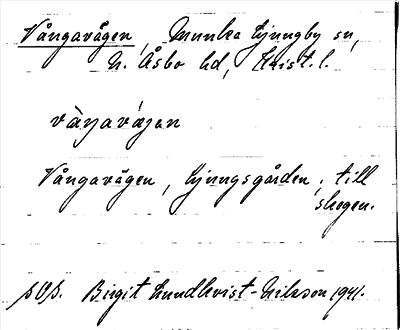 Vångavägen, Munka Ljungby sn,
N. Åsbo hd, Krist. l.
vàŋavájen
Vångavägen, Ljungsgården; till
skogen.
Birgit Lundkvist-Nilsson 1941.